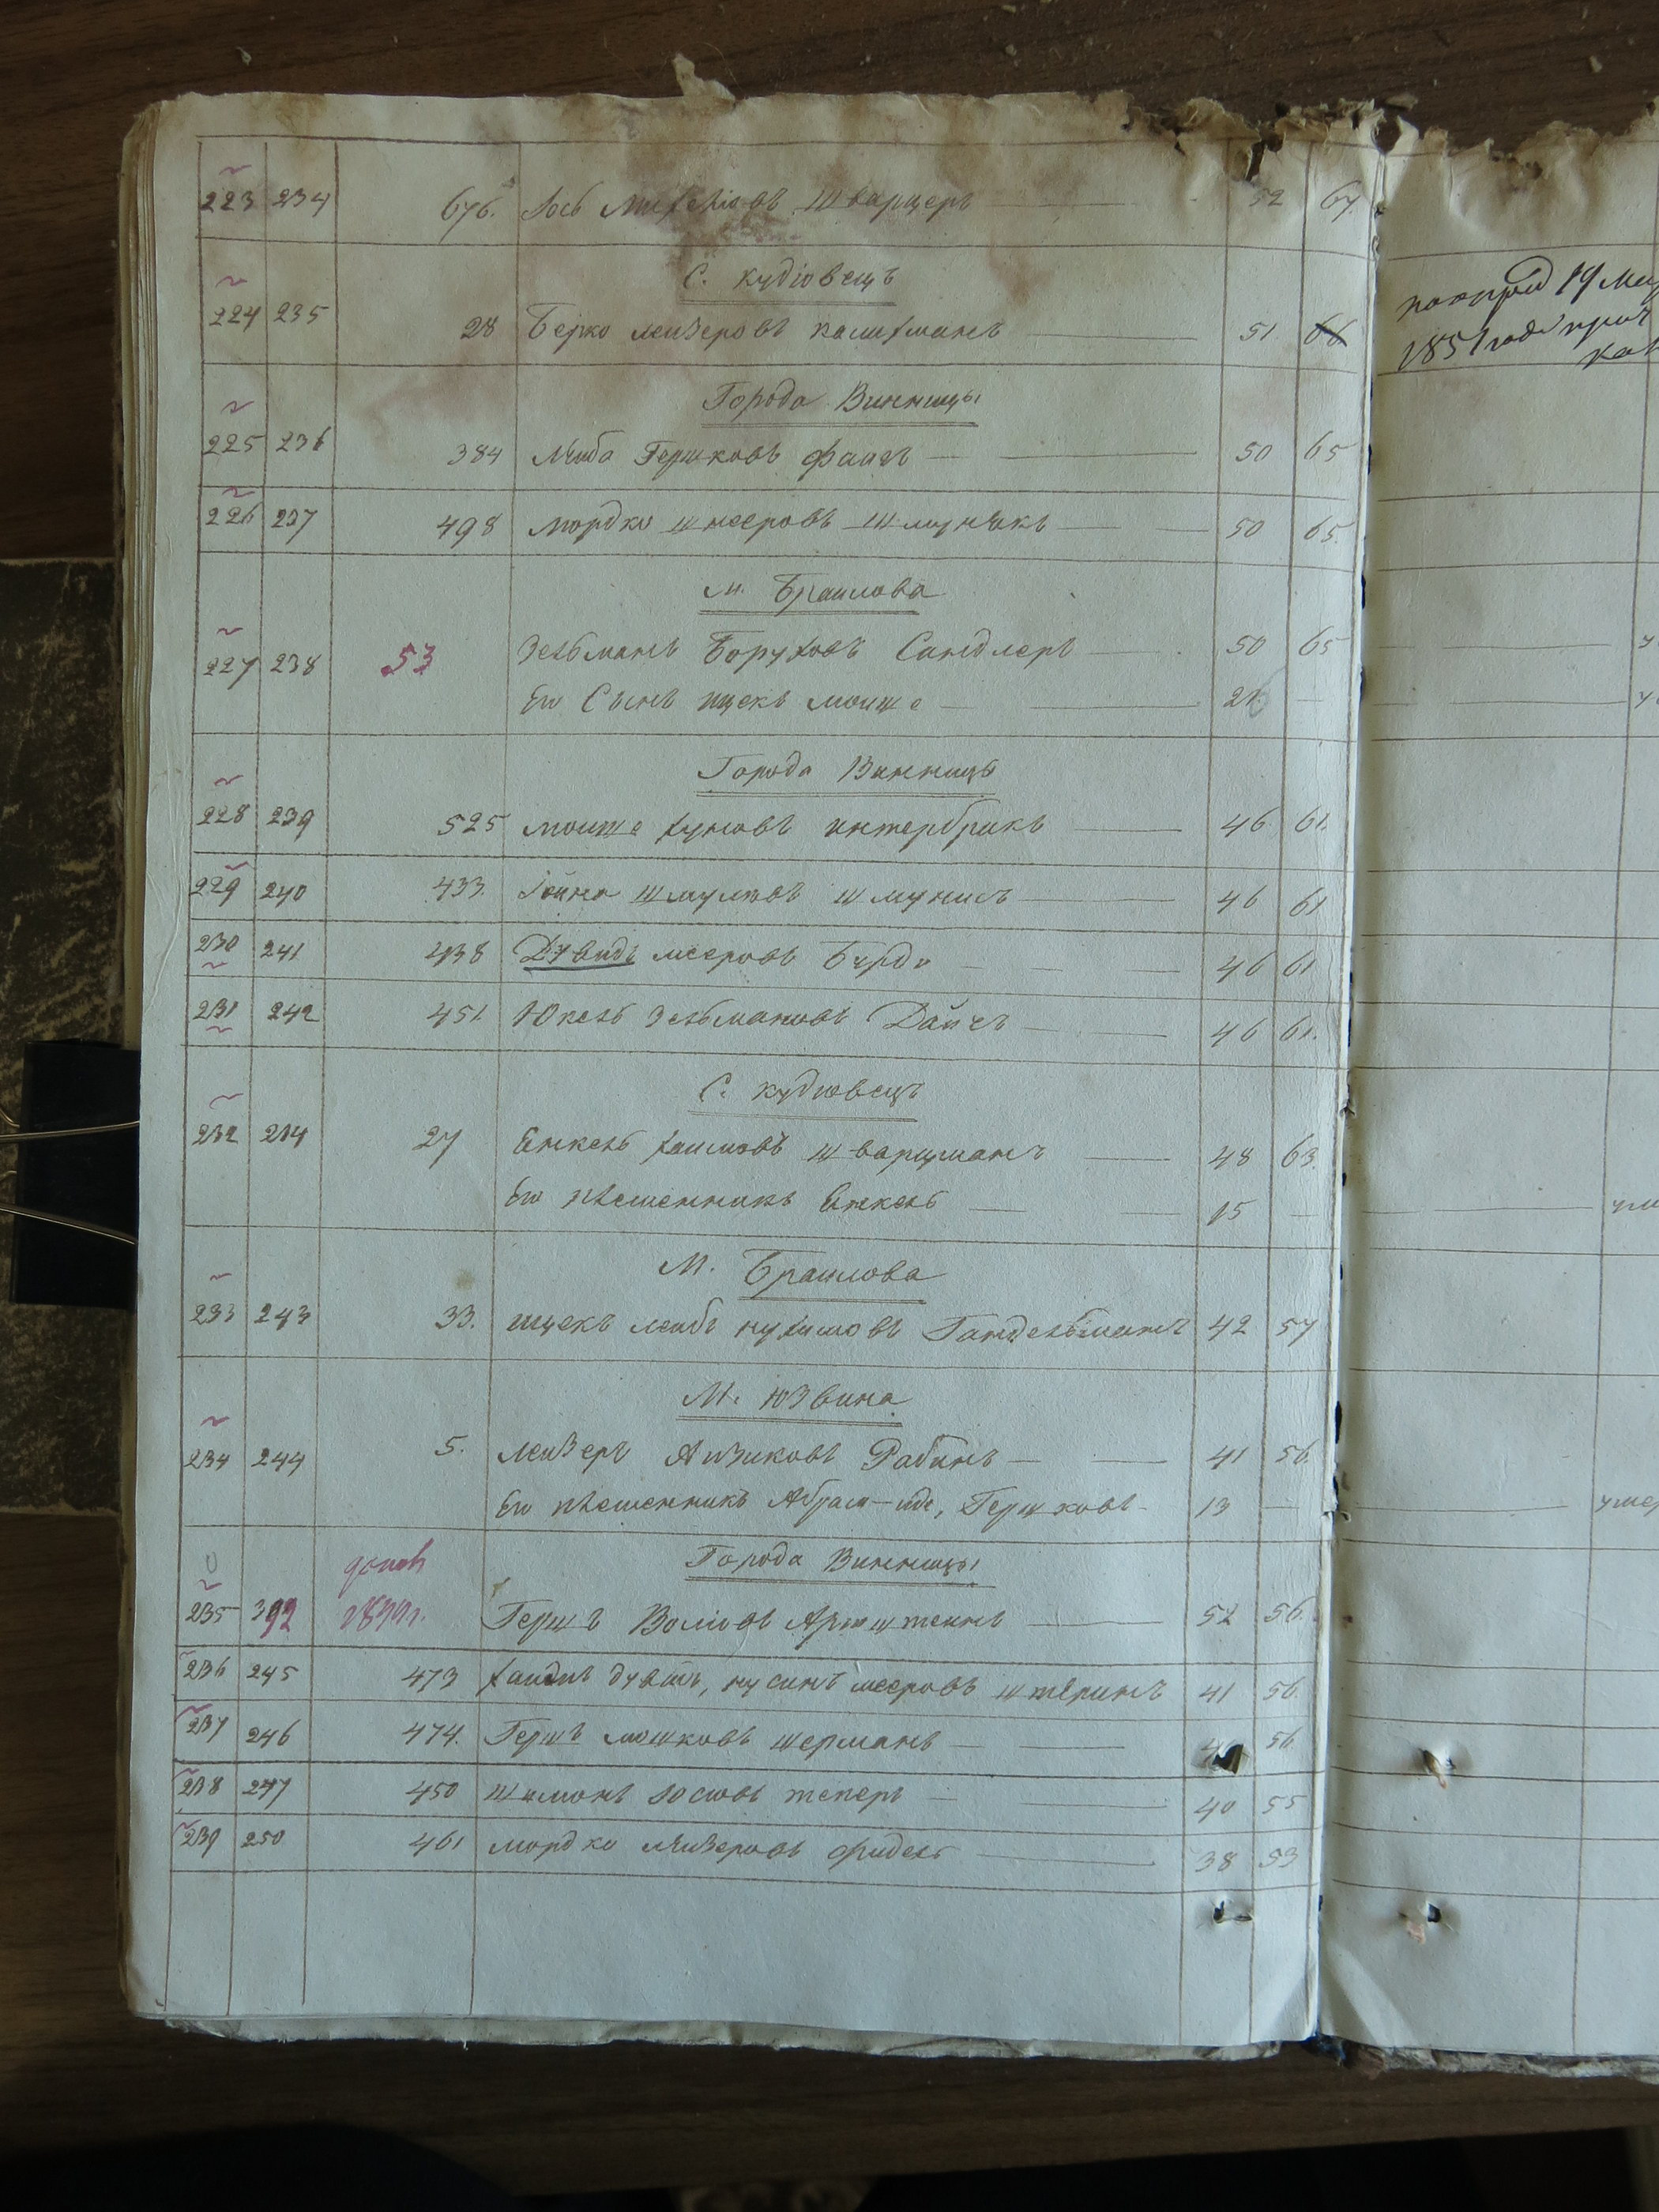 223 234 676. Іось Михелiовъ Шварцеръ 52 67.
С. Кудіовецъ
224 235 28 Берко Лейзеровъ Каштманъ 51 66
19
1851 года
Города Винницы
225 236 384 Лейба Гершковъ Файгъ 50 65
226 237 498 Мордко Шнееровъ Шмунякъ 50 65.
М. Браилова
227 238 53 Зельманъ Боруховъ Сандлеръ 50 65
Его Сынъ Ицекъ Мошке 21
Города Винницы
228 239 525 Мошке Хуновъ Интербрикъ 46. 61.
229 240 433. Іойна Шмулевъ Шмунисъ 46 61
230 241 438 Давидъ Мееровъ Бурда 46 61
231 242 451. Юкель Зельмановъ Дайчъ 46 61.
С. Кудювецъ
232 214 27 Янкель Хаимовъ Шварцманъ 48 63.
Его племенникъ Янкель 15
М. Браилова
233 243 33. Ицекъ Лейбъ Нухимовъ Гандельманъ 42 57
М. Юзвина
234 244 5. Лейзеръ Айзиковъ Рабинъ 41 56.
Его племенникъ Абрам-Иде, Гершковъ 13
Города Винницы
235 392 1839г. Гершъ Волковъ Арнштейнъ 52 56.
236 245 473 Нусинъ Мееровъ Штеринъ 41 56.
237 246 474. Гершъ Мошковъ Шерманъ 56.
238 247 450 Шимонъ Іосіовъ Теперъ 40 55
239 250 461 Мордко Лейзеровъ Фидель 38 53